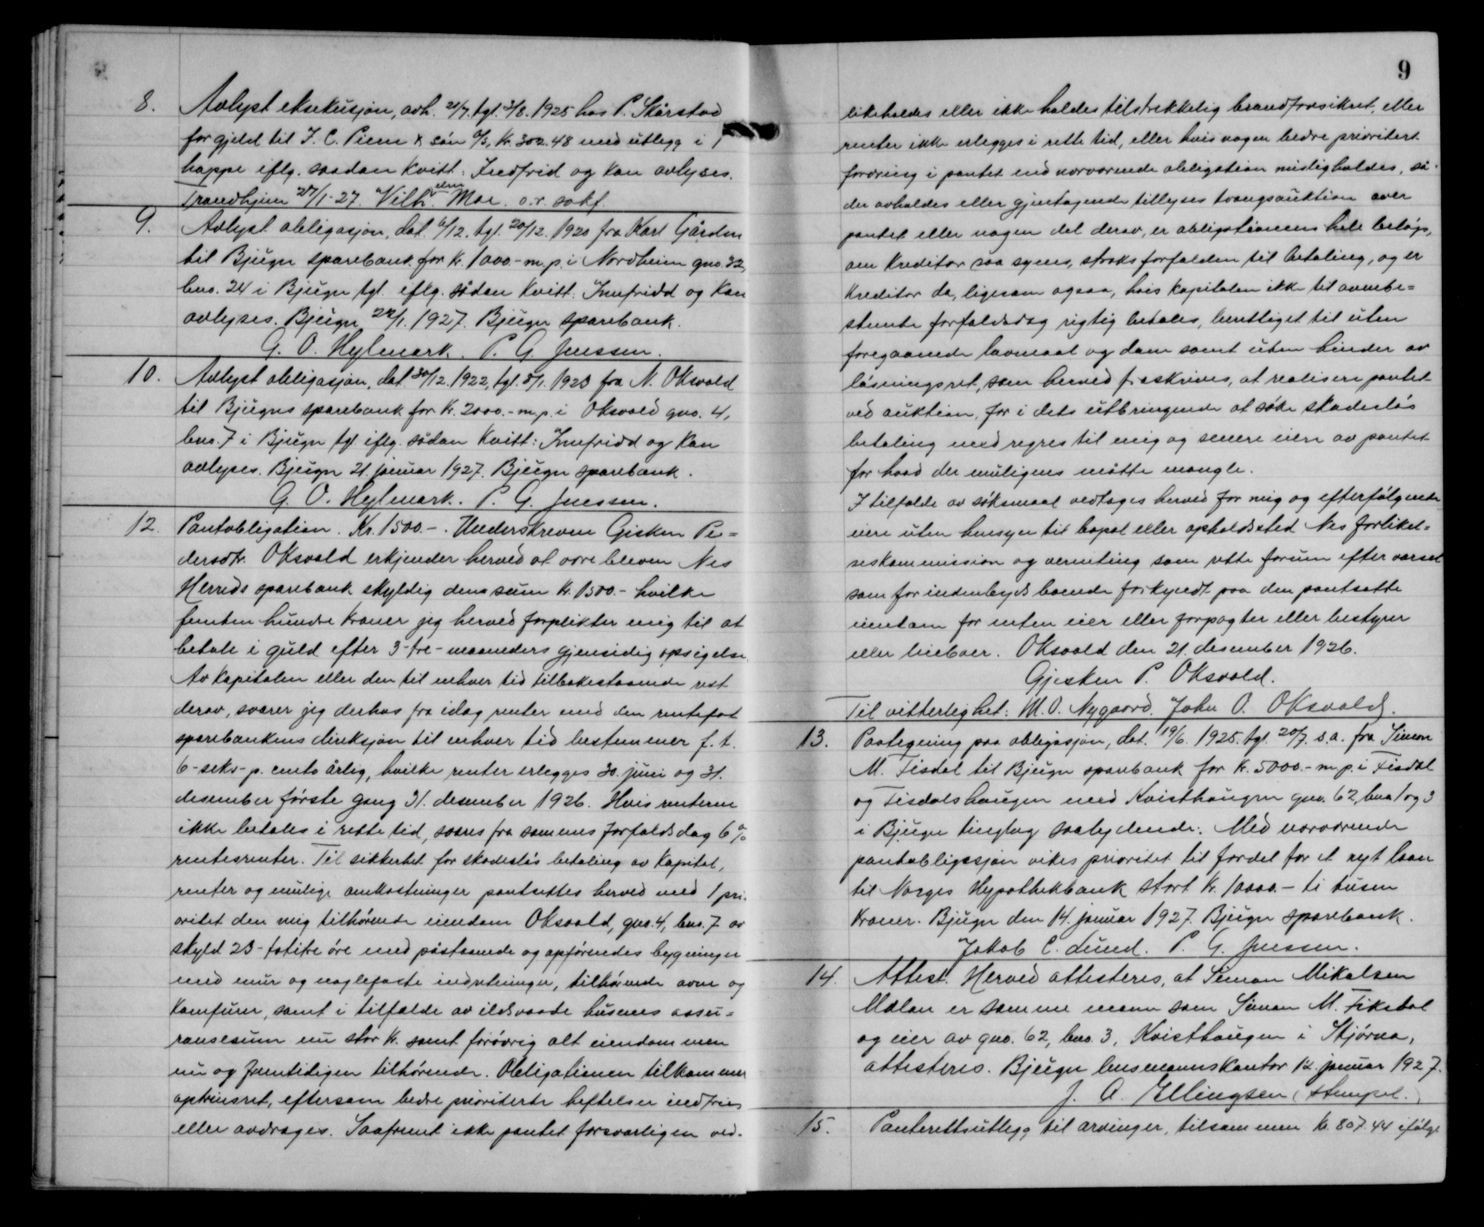 8. Avlyst eksekusjon, avh. 21/7 tgl. 3/8. 1925 hos P. Skårstad
for gjeld til I. C. Piene & søn A/S, kr. 302.48 med utlegg i 1
hoppe eflg. saadan kvitt: Indfrid og kan avlyses.
Trondhjem 27/1-27. Vilhelm Moe. o.r. sakf.
9. Avlyst obligasjon, dat. 6/12. tgl. 20/12. 1920 fra Karl Gården
til Bjugn sparebank for kr. 1000.- m.p. i Nordheim gno. 32,
bno. 24 i Bjugn tgl. eflg. sådan kvitt. Innfridd og kan
avlyses. Bjugn 24/1. 1927. Bjugn sparebank.
G. O. Hylmark. P. G. Jenssen.
10. Avlyst obligasjon, dat 30/12. 1922, tgl. 5/1. 1923 fra N. Oksvold
til Bjugns sparebank for kr. 2000.- m.p. i Oksvold gno. 4,
bno. 7 i Bjugn tgl. iflg. sådan kvitt: Innfridd og kan
avlyses. Bjugn 21. januar 1927. Bjugn sparebank.
G. O. Hylmark. P. G. Jenssen.
12. Pantobligation. Kr. 1500.-. Underskreven Gisken Pe=
dersdtr. Oksvold erkjender herved at være bleven Nes
Herreds sparebank skyldig den sum kr. 1500.- hvilke
femten hundre kroner jeg herved forplikter mig til at
betale i guld efter 3-tre- maaneders gjensidig opsigelse.
Av kapitalen eller den til enhver tid tilbakestaaende rest
derav, svarer jeg derhos fra idag renter med den rentefot
sparebankens direksjon til enhver tid bestemmer f. t.
6-seks- p. cento årlig, hvilke renter erlegges 30. juni og 31.
desember første gang 31. desember 1926. Hvis renterne
ikke betales i rette tid, svares fra sammes forfaldsdag 6 %
rentesrenter. Til sikkerhet for skadesløs betaling av kapital,
renter og mulige omkostninger pantsettes herved med 1 pri.
oritet den mig tilhørende eiendom Oksvold, gno. 4, bno. 7 av
skyld 23- øre med påstaaende og opførendes bygninger
med mur og naglefaste indretninger, tilhørende ovne og
komfurer, samt i tilfælde av ildsvaade husenes assu=
ransesum nu stor kr. samt forøvrig alt eiendommen
nu og fremtidigen tilhørende. Obligationen tilkommer
opriksret, eftersom bedre prioriterte heftelser indfries
eller avdrages. Saafremt ikke pantet forsvarligen ved-
9
likeholdes eller ikke holdes tilstrekkelig brandforsikret, eller
renter ikke erlegges i rette tid, eller hvis nogen bedre prioritert
fordring i pantet end nærværende obligation misligholdes, så-
der avholdes eller gjentagende tillyses tvangsauktion over
pantet eller nogen del derav, er obligationens hele beløp,
om kreditor saa synes, straks forfalden til betaling, og er
kreditor da, ligesom ogsaa, hvis kapitalen ikke til ovenbe=
stemte forfaldsdag rigtig betales, berettiget til uten
foregaaende lovmaal og dom samt uten hinder av
løsningsret, som herved fraskrives, at realisere pantet
ved auktion, for i dets utbringende at søke skadesløs
betaling med regres til mig og senere eiere av pantet
for hvad der muligens måtte mangle.
I tilfælde av søksmaal vedtages herved for mig og efterfølgende
eiere uten hensyn til bopæl eller opholdssted Nes forlikel=
seskommission og verneting som rette forum efter varsel
som for indenbygds boende forkyndt paa den pantsatte
eiendom for enten eier eller forpagter eller bestyrer
eller leieboer. Oksvold den 21. desember 1926.
Gjesken P. Oksvold.
Til vitterlighet: M. O. Nygaard. John O. Oksvold.
13. Paategning paa obligasjon, dat. 19/6. 1925. tgl. 20/7. s.a. fra Simon
M. Fisdal til Bjugn sparebank for kr. 5000.- m.p. i Fisdal
og Fisdalshaugen med Kvisthaugen gno. 62, bno. 1 og 3
i Bjugn tinglag saalydende: Med nærværende
pantobligasjon vikes prioritet til fordel for et nyt laan
til Norges Hypothekbank stort kr. 10000.- ti tusen
kroner. Bjugn den 14. januar 1927. Bjugn sparebank.
Jakob C. Lund. P. G. Jenssen.
14. Attest. Herved attesteres, at Simon Mikalsen
Mælan er samme mann som Simon M.
og eier av gno. 62, bno. 3, Kvisthaugen i Stjørna,
attesteres. Bjugn lensmannskontor 12. januar 1927.
J. A. Ellingsen (Stempel.)
15. Panterettsutlegg til arvinger, tilsammen kr. 807.44 ifølge